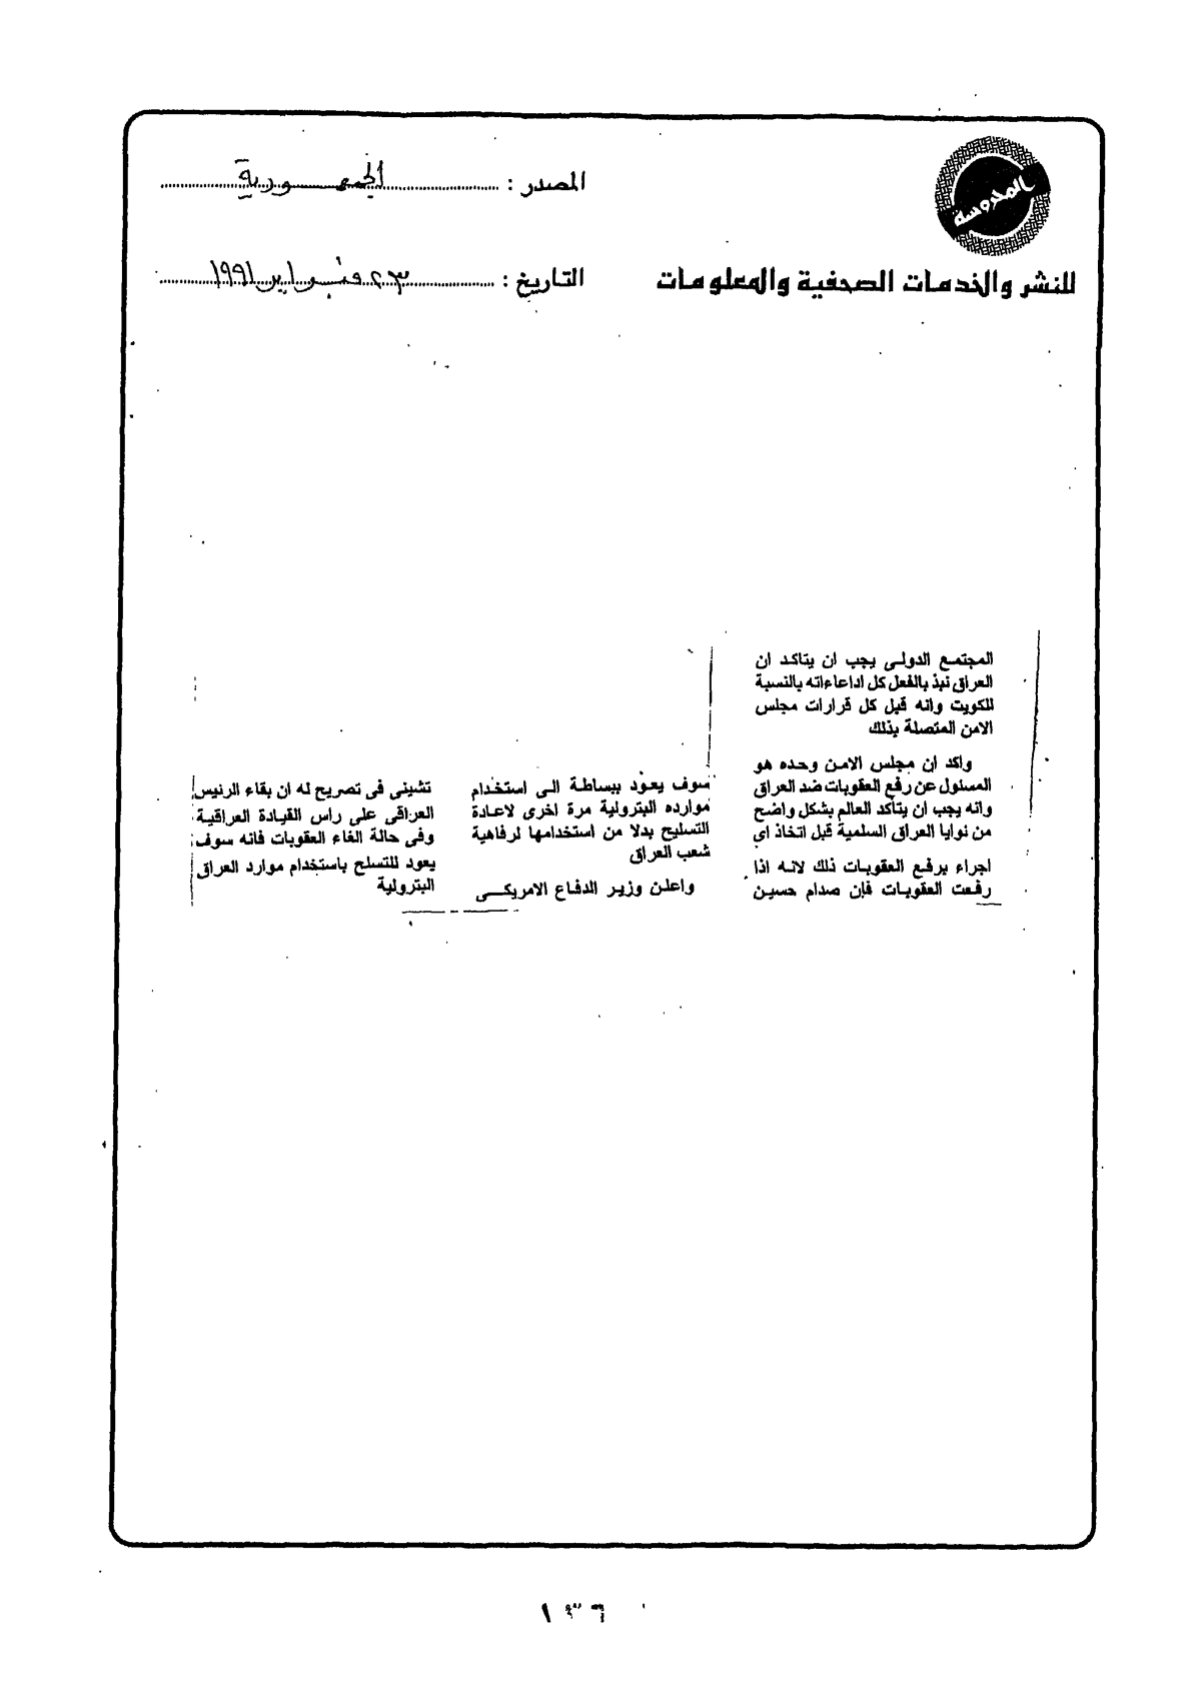 المحروسة
للنشر والخدمات الصحفية والمعلومات
المصدر : الجمهورية
التاريخ : ٢٣ فبراير ١٩٩١
المجتمع الدولى يجب ان يتاكد ان
العراق نبذ بالفعل كل اداعاءاته بالنسبة
للكويت وانه قبل كل قرارات مجلس
الامن المتصلة بذلك
واكد ان مجلس الامن وحده هو
المسئول عن رفع العقوبات ضد العراق
وانه يجب ان يتأكد العالم بشكل واضح
من نوايا العراق السلمية قبل اتخاذ اى
اجراء برفع العقوبات ذلك لانه اذا
رفعت العقوبات فإن صدام حسين
سوف يعود ببساطة الى استخدام
موارده البترولية مرة اخرى لاعادة
التسليح بدلا من استخدامها لرفاهية
شعب العراق
واعلن وزير الدفاع الامريكى
تشينى فى تصريح له ان بقاء الرئيس
العراقى على راس القيادة العراقية
وفى حالة الغاء العقوبات فانه سوف
يعود للتسلح باستخدام موارد العراق
البترولية
١٣٦